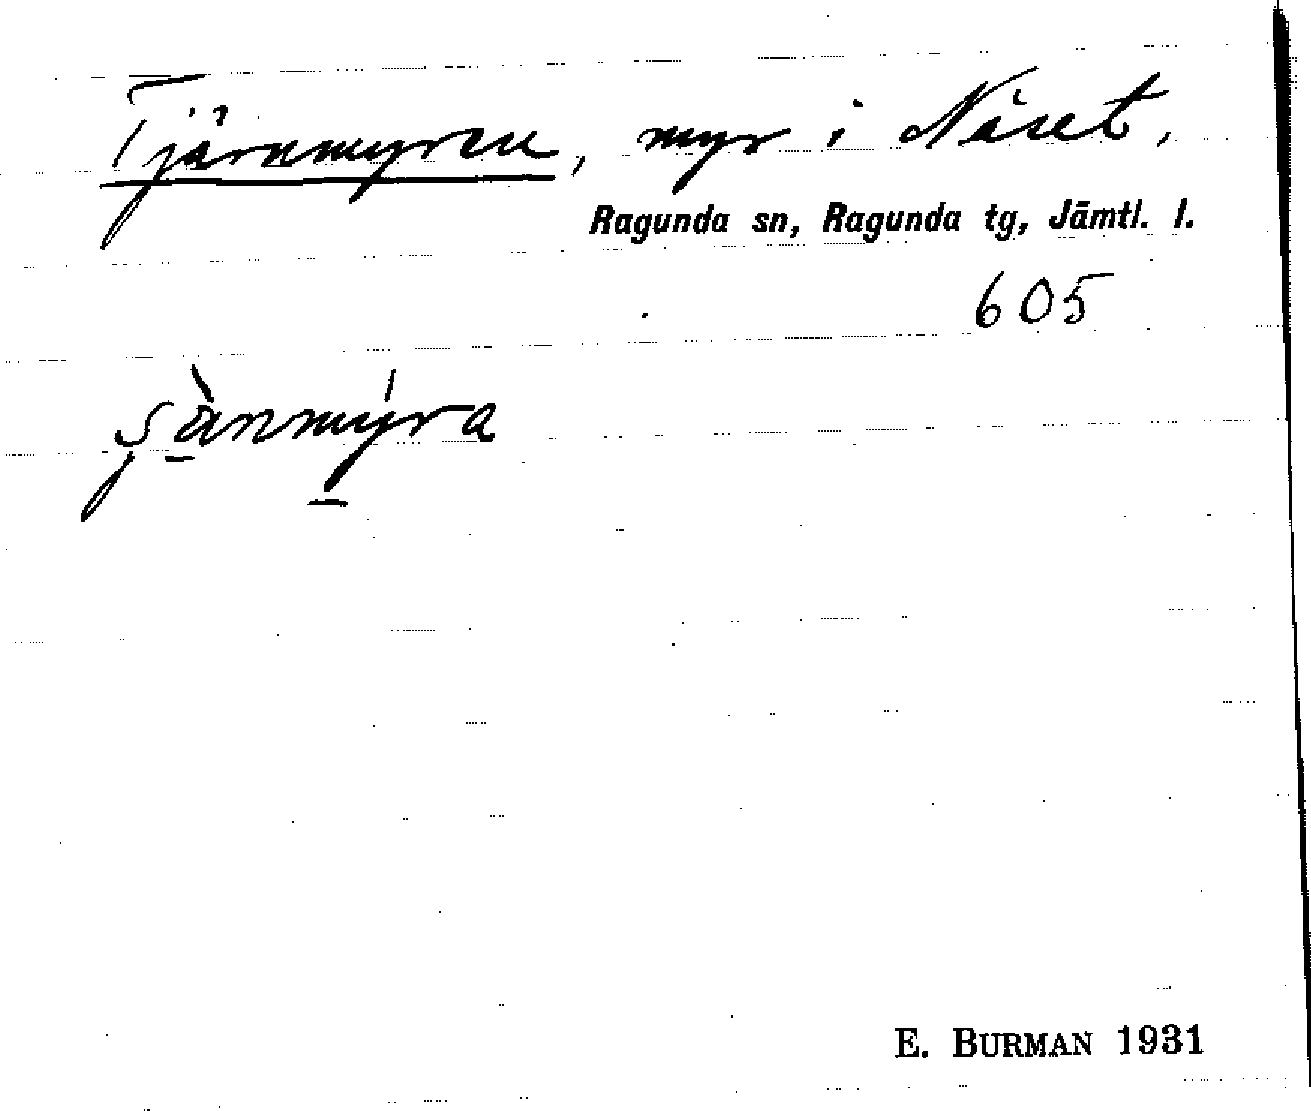 Tjärnmyren, myr i Näset,
Ragunda sn, Ragunda tg, Jämtl. l.
605
E. BURMAN 1931